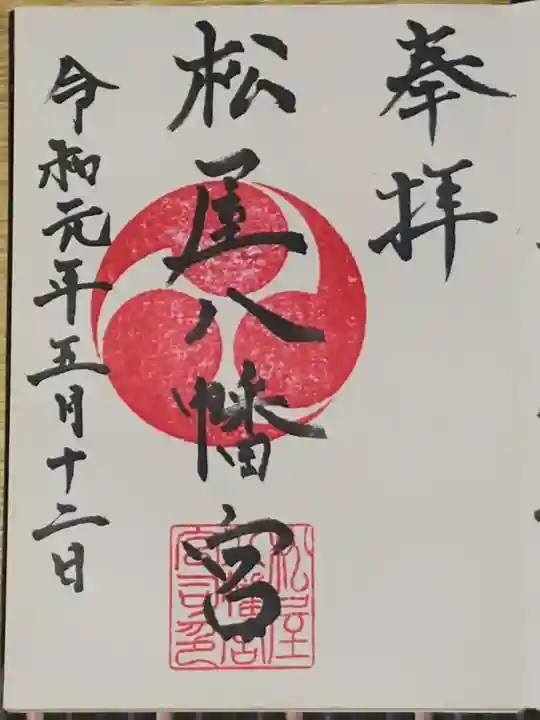 奉拝
松屋八幡宮
令和元年五月十二日
松屋
八幡宮
宮司印